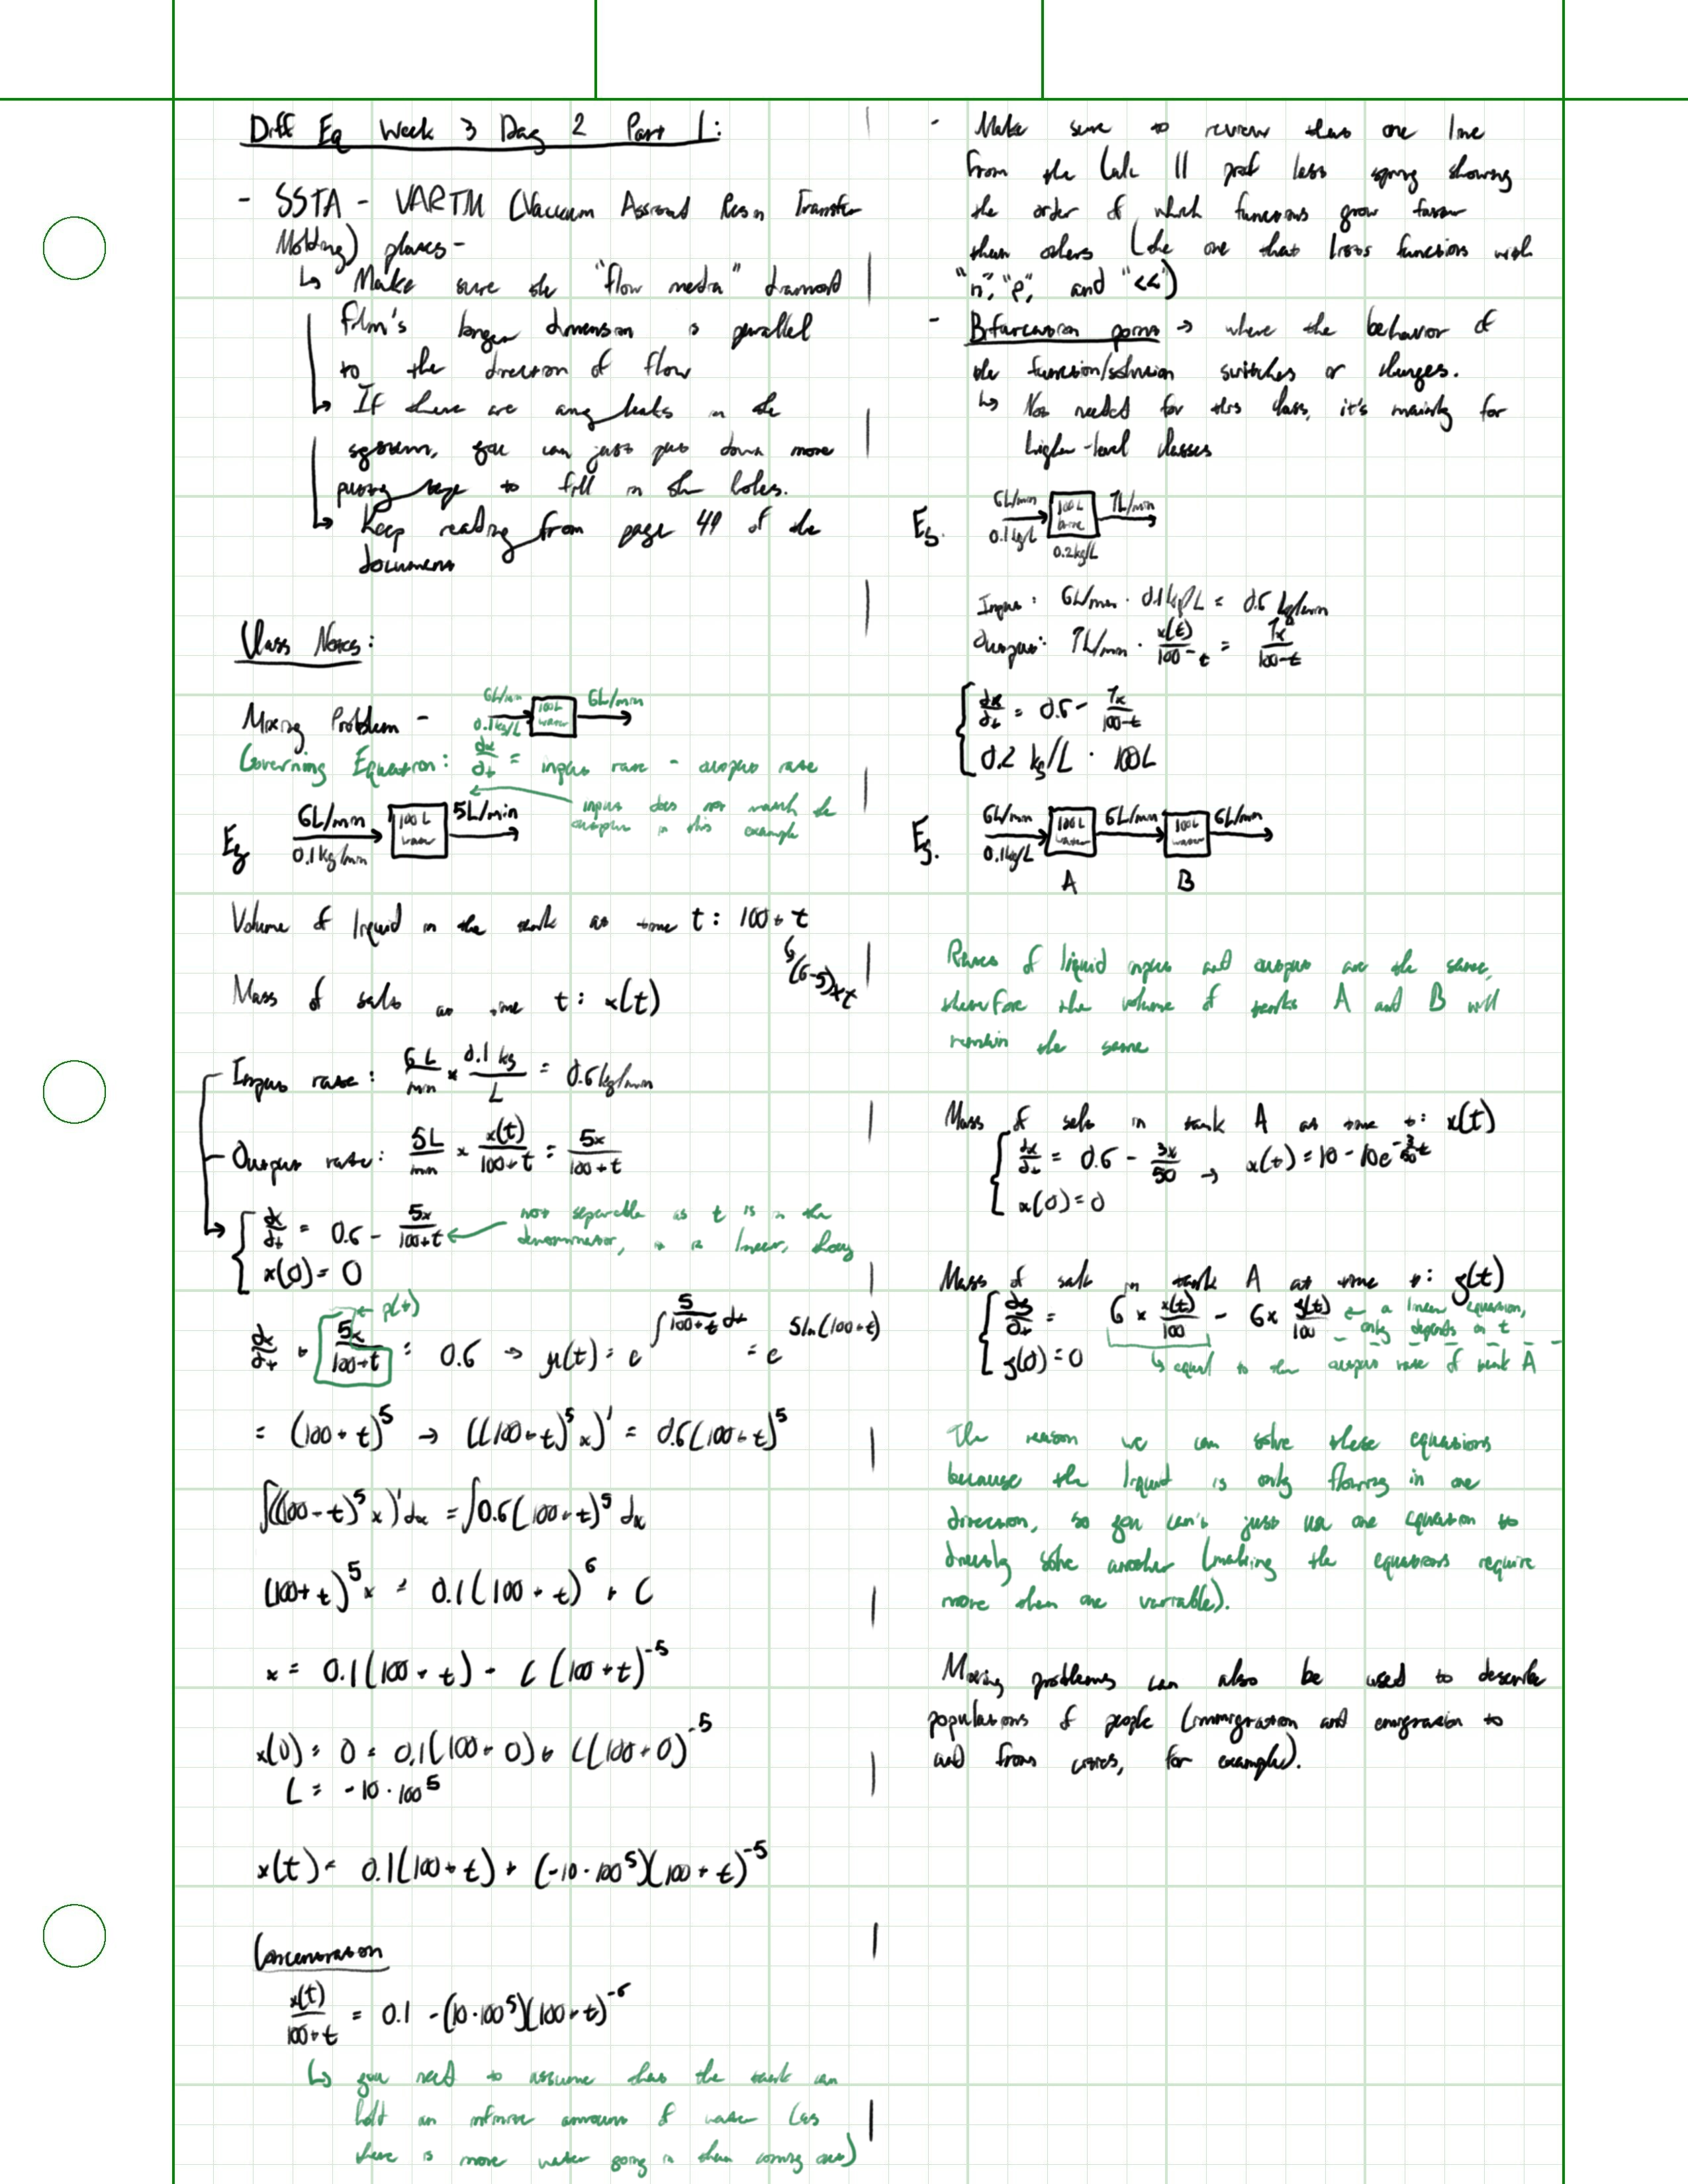 Diff Eq Week 3 Day 2 Part 1:
- SSTA - VARTM (Vacuum Assisted Resin Transfer
Molding) planes -
↳ Make sure the "flow media" diamond
film's longer dimension is parallel
to the direction of flow
↳ If there are any leaks in the
system, you can just put down more
putty tape to fill in the holes.
↳ Keep reading from page 49 of the
document
Class Notes:
Mixing Problem -
6L/min
0.1kg/L
100L
water
6L/min
Governing Equation: dx/dt = input rate - output rate
input does not match the
output in this example
Eg
6L/min
0.1kg/min
100L
water
5L/min
Volume of liquid in the tank at time t: 100+t
↳(6-5)×t
Mass of salt at time t: x(t)
Input rate: 6L/min × 0.1kg/L = 0.6kg/min
Output rate: 5L/min × x(t)/100+t = 5x/100+t
dx/dt = 0.6 - 5x/100+t ← not separable as t is in the
denominator, it is linear, thoug
x(0)=0
← p(t)
dx/dt + 5x/100+t = 0.6 → μ(t) = e^∫5/100+t dt = e^5ln(100+t)
= (100+t)^5 → ((100+t)^5 x)' = 0.6(100+t)^5
∫((100+t)^5 x)'dx = ∫0.6(100+t)^5 dx
(100+t)^5 x = 0.1(100+t)^6 + C
x = 0.1(100+t) + C(100+t)^-5
x(0) = 0 = 0.1(100+0) + C(100+0)^-5
C = -10·100^5
x(t) = 0.1(100+t) + (-10·100^5)(100+t)^-5
Concentration
x(t)/100+t = 0.1 - (10·100^5)(100+t)^-6
↳ you need to assume that the tank can
hold an infinite amount of water (as
there is more water going in than coming out)
- Make sure to review that one line
from the Calc II prof last spring showing
the order of which functions grow faster
than others (the one that lists functions with
"n", "e", and "<<")
- Bifurcation points → where the behavior of
the function/solution switches or changes.
↳ Not needed for this class, it's mainly for
higher-level classes
Eg.
6L/min
0.1kg/L
100L
brine
7L/min
0.2kg/L
Input: 6L/min · 0.1kg/L = 0.6 kg/min
Output: 7L/min · x(t)/100-t = 7x/100-t
dx/dt = 0.6 - 7x/100-t
0.2 kg/L · 100L
Eg.
6L/min
0.1kg/L
100L
water
6L/min
100L
water
6L/min
A B
Rates of liquid input and output are the same,
therefore the volume of tanks A and B will
remain the same
Mass of salt in tank A at time t: x(t)
dx/dt = 0.6 - 3x/50 → x(t) = 10 - 10e^-3/50t
x(0)=0
Mass of salt in tank A at time t: y(t)
dy/dt = 6 × x(t)/100 - 6 × y(t)/100 ← a linear equation,
only depends on t
y(0)=0
↳ equal to the output rate of tank A
The reason we can solve these equations
because the liquid is only flowing in one
direction, so you can't just use one equation to
directly solve another (making the equations require
more than one variable).
Mixing problems can also be used to describe
populations of people (immigration and emigration to
and from cities, for example).